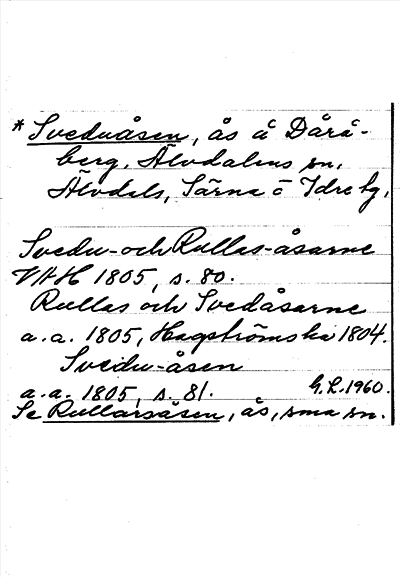 * Sveduåsen, ås å Dårå-
berg, Älvdalens sn,
Älvdals, Särna ö Idre hg,
Svedu- och Rullas-åsarne
VHH 1805, s. 80.
Rullas och Svedåsarne
a.a. 1805, Hagströmska 1804.
Svedu-åsen
a.a. 1805, s. 81. G.L. 1960.
Se Rullaråsen, ås, sma sn.